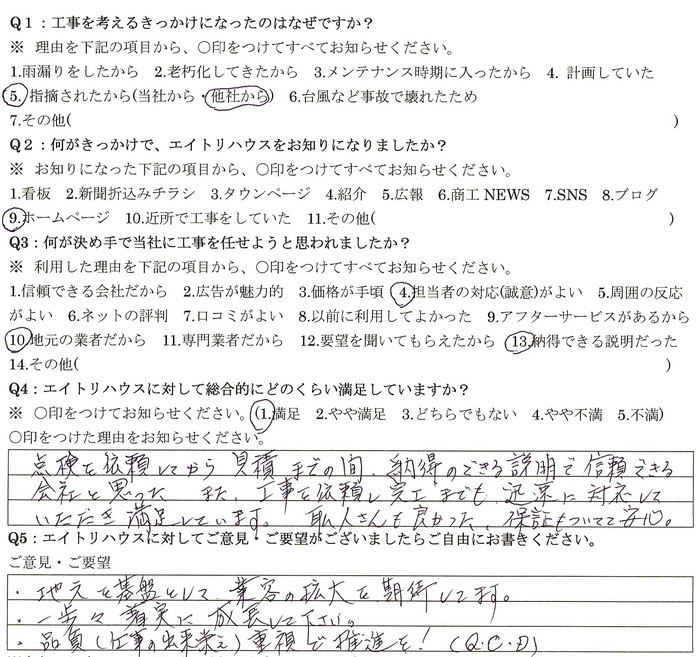 Q1：工事を考えるきっかけになったのはなぜですか？
※ 理由を下記の項目から、〇印をつけてすべてお知らせください。
1.雨漏りをしたから 2.老朽化してきたから 3.メンテナンス時期に入ったから 4. 計画していた
5. 指摘されたから(当社から・他社から) 6.台風など事故で壊れたため
7.その他( )
Q2：何がきっかけで、エイトリハウスをお知りになりましたか？
※ お知りになった下記の項目から、〇印をつけてすべてお知らせください。
1.看板 2.新聞折込みチラシ 3.タウンページ 4.紹介 5.広報 6.商工 NEWS 7.SNS 8.ブログ
9.ホームページ 10.近所で工事をしていた 11.その他( )
Q3：何が決め手で当社に工事を任せようと思われましたか？
※ 利用した理由を下記の項目から、〇印をつけてすべてお知らせください。
1.信頼できる会社だから 2.広告が魅力的 3.価格が手頃 4.担当者の対応(誠意)がよい 5.周囲の反応
がよい 6.ネットの評判 7.口コミがよい 8.以前に利用してよかった 9.アフターサービスがあるから
10.地元の業者だから 11.専門業者だから 12.要望を聞いてもらえたから 13.納得できる説明だった
14.その他( )
Q4：エイトリハウスに対して総合的にどのくらい満足していますか？
※ 〇印をつけてお知らせください。(1.満足 2.やや満足 3.どちらでもない 4.やや不満 5.不満)
〇印をつけた理由をお知らせください。
点検を依頼してから見積までの間、納得のできる説明で信頼できる
会社と思った また、工事を依頼し完工までも迅速に対応して
いただき満足しています。 職人さんも良かった、保証もついてて安心。
Q5：エイトリハウスに対してご意見・ご要望がございましたらご自由にお書きください。
ご意見・ご要望
・地元を基盤として、業容の拡大を期待してます。
・一歩々着実に成長して下さい。
・品質(仕事の出来栄え)重視で推進を！(Q.C.D)